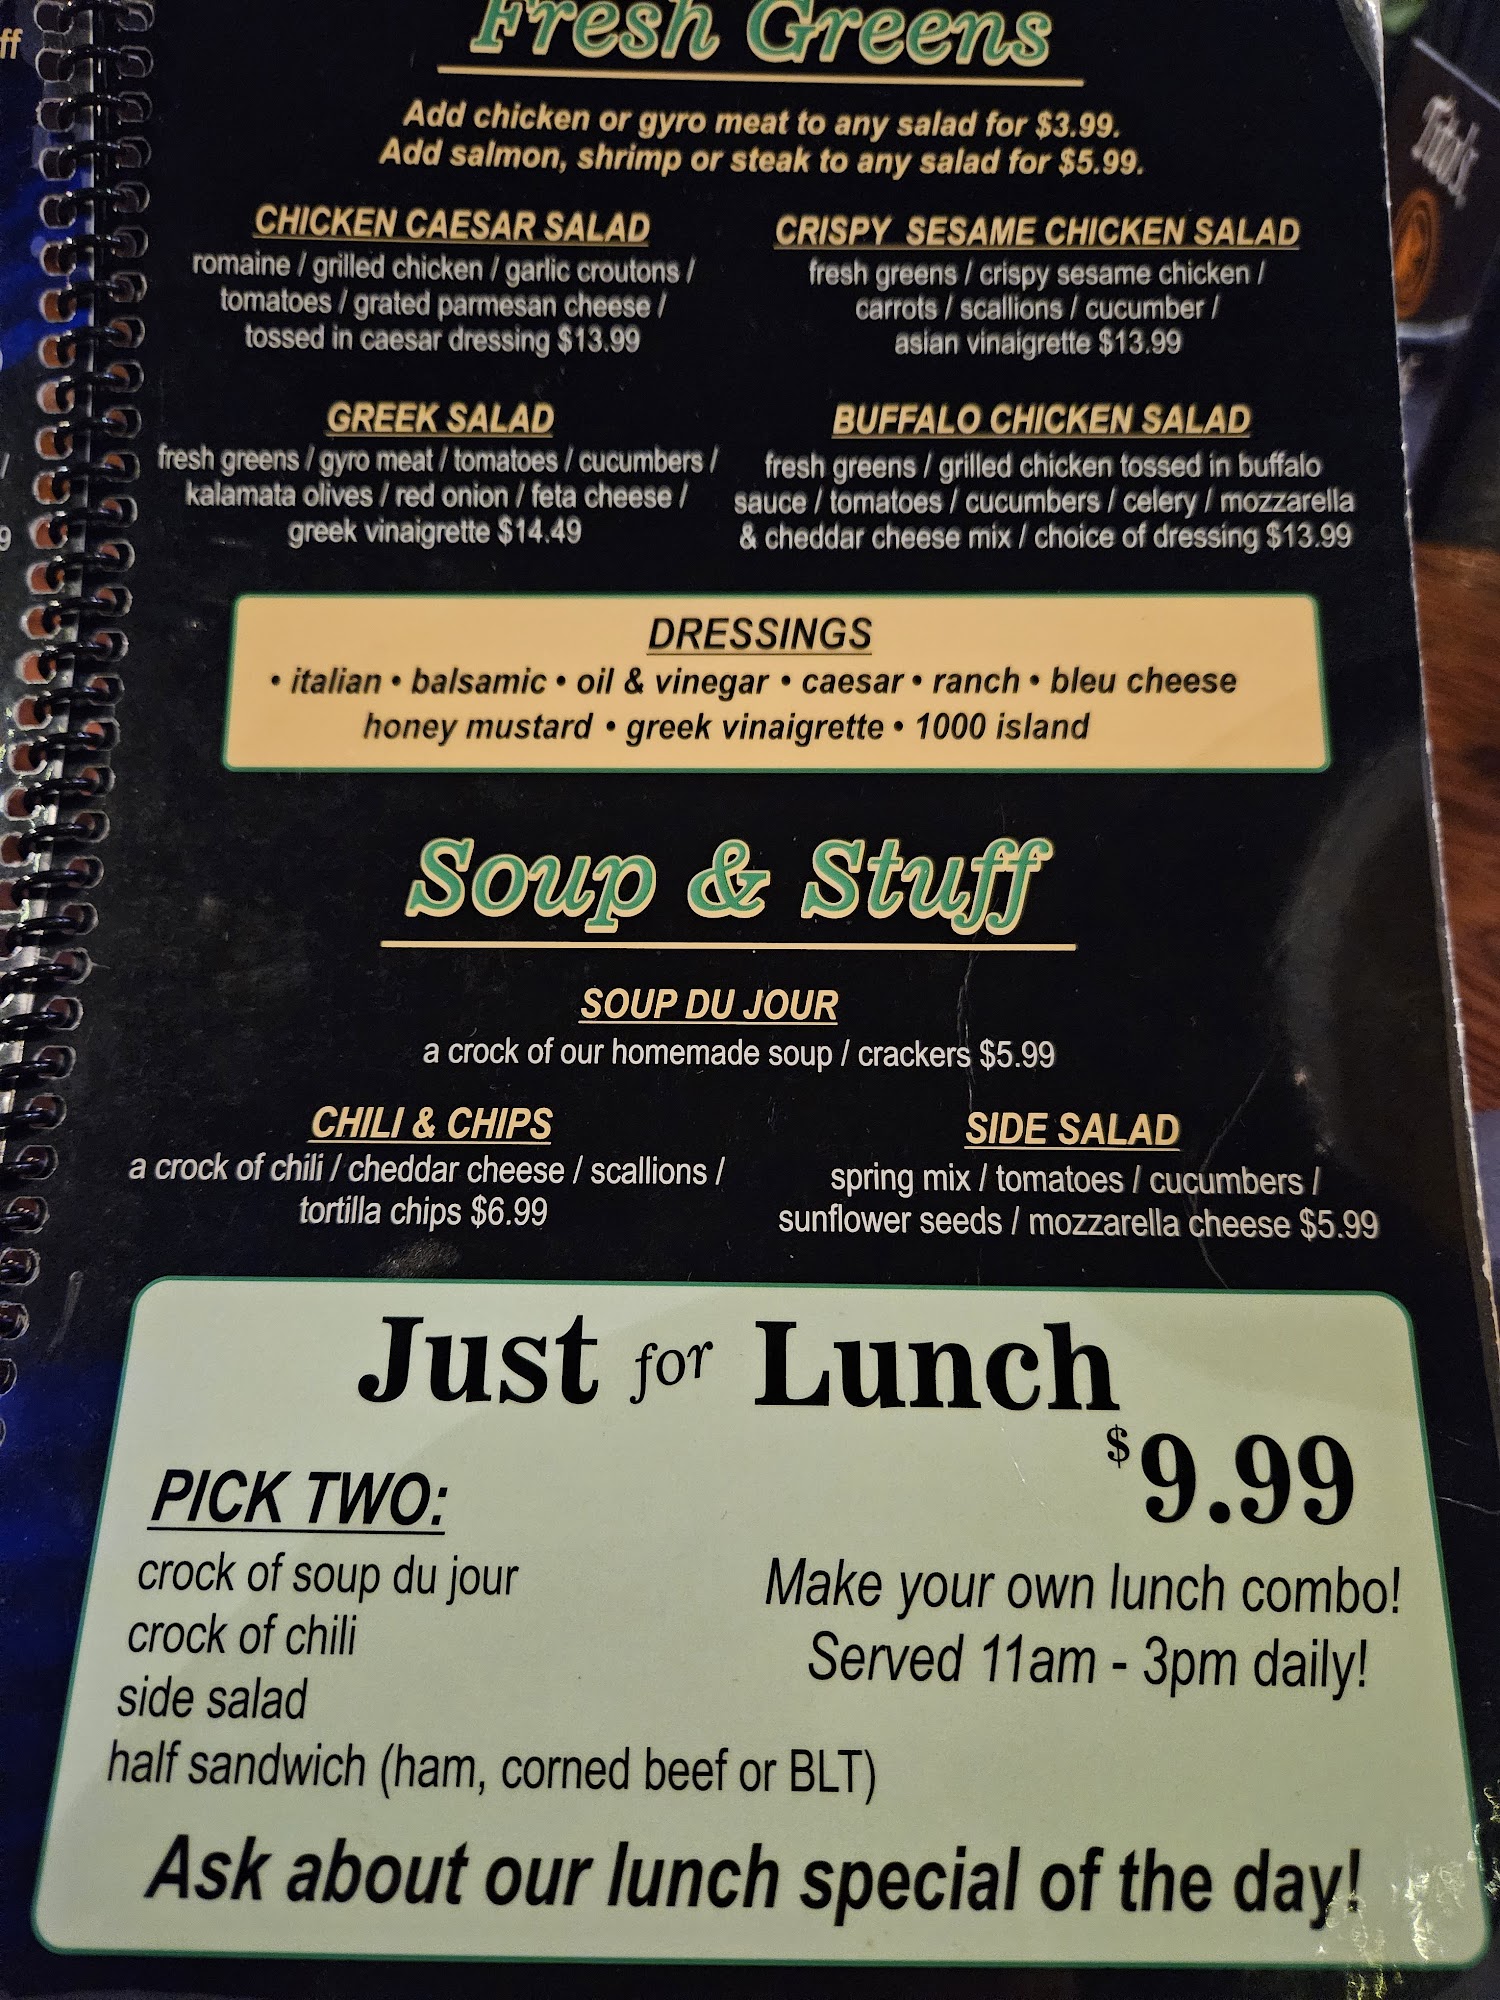 ff
Fresh Greens
Add chicken or gyro meat to any salad for $3.99.
Add salmon, shrimp or steak to any salad for $5.99.
CHICKEN CAESAR SALAD
romaine / grilled chicken / garlic croutons /
tomatoes / grated parmesan cheese /
tossed in caesar dressing $13.99
CRISPY SESAME CHICKEN SALAD
fresh greens / crispy sesame chicken /
carrots / scallions / cucumber /
asian vinaigrette $13.99
GREEK SALAD
fresh greens / gyro meat / tomatoes / cucumbers /
kalamata olives / red onion / feta cheese /
greek vinaigrette $14.49
BUFFALO CHICKEN SALAD
fresh greens / grilled chicken tossed in buffalo
sauce / tomatoes / cucumbers / celery / mozzarella
& cheddar cheese mix / choice of dressing $13.99
/
9
DRESSINGS
• italian • balsamic • oil & vinegar • caesar • ranch • bleu cheese
honey mustard • greek vinaigrette • 1000 island
Soup & Stuff
SOUP DU JOUR
a crock of our homemade soup / crackers $5.99
CHILI & CHIPS
a crock of chili / cheddar cheese / scallions /
tortilla chips $6.99
SIDE SALAD
spring mix / tomatoes / cucumbers /
sunflower seeds / mozzarella cheese $5.99
Just for Lunch
$9.99
PICK TWO:
crock of soup du jour
crock of chili
side salad
half sandwich (ham, corned beef or BLT)
Make your own lunch combo!
Served 11am - 3pm daily!
Ask about our lunch special of the day!
Tito's